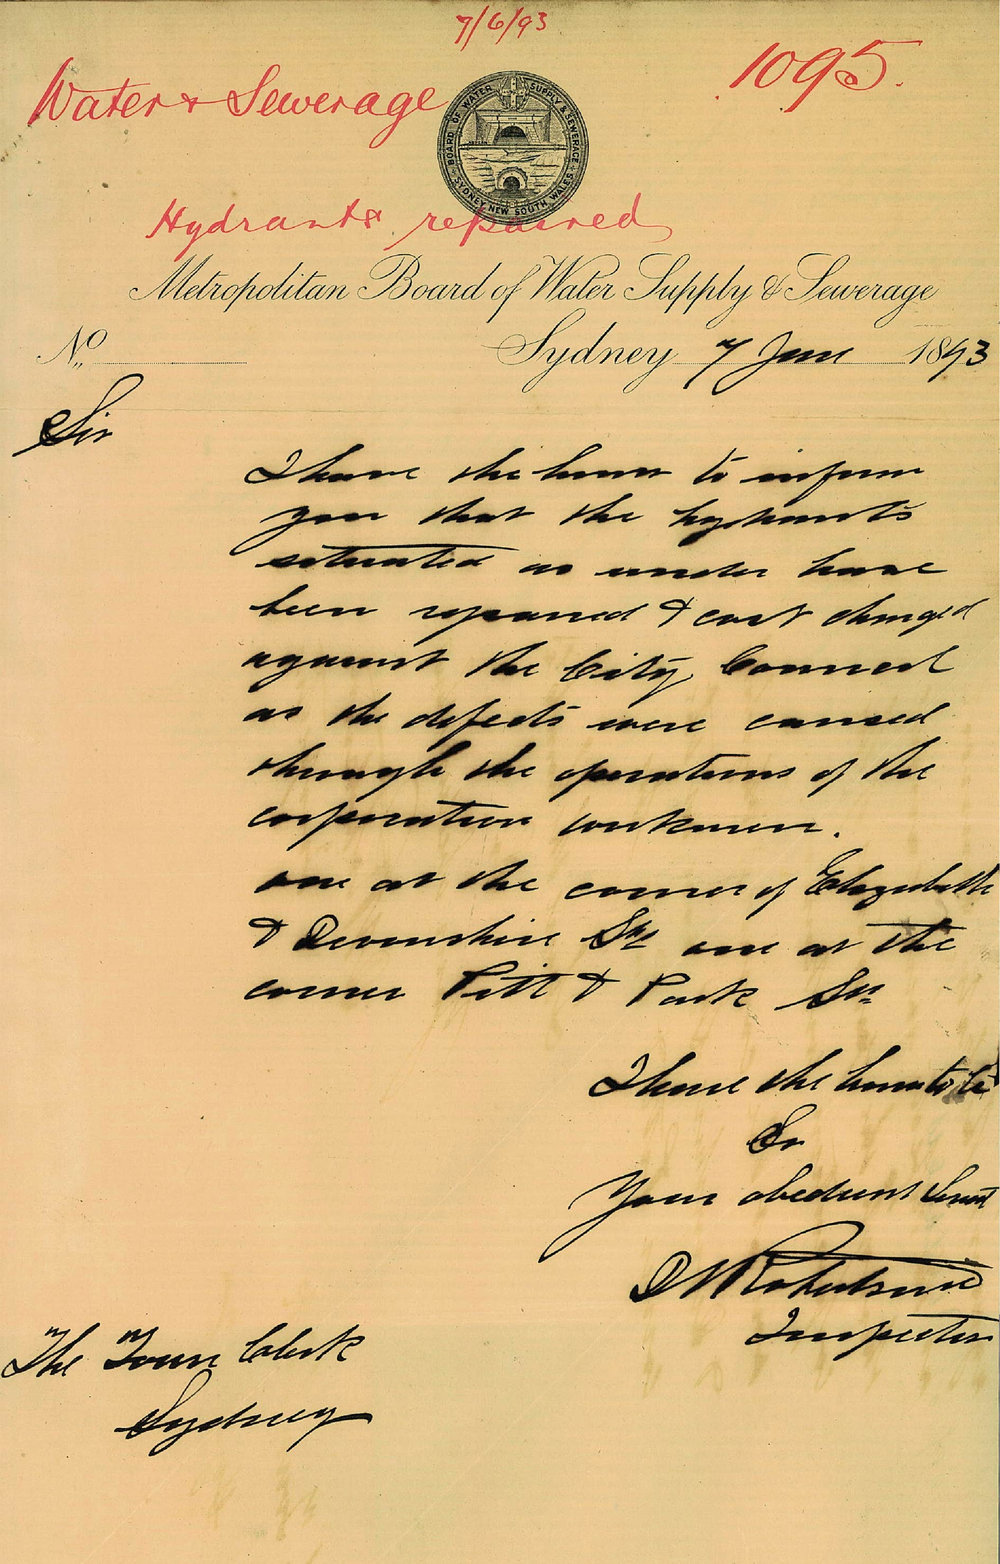 7/6/93
1095.
Water & Sewerage
BOARD OF WATER SUPPLY & SEWERAGE
SYDNEY NEW SOUTH WALES
Hydrants repaired
Metropolitan Board of Water Supply & Sewerage
No
Sydney 7 June 1893
Sir
I have the honor to inform
you that the hydrants
situated as under have
been repaired & cost charged
against the City Council
as the defects were caused
through the operations of the
corporation workmen.
one at the corner of Elizabeth
& Devonshire Sts one at the
corner Pitt & Park Sts
I have the honor to be
Sir
Your obedient Servant
Robertson
Inspector
The Town Clerk
Sydney